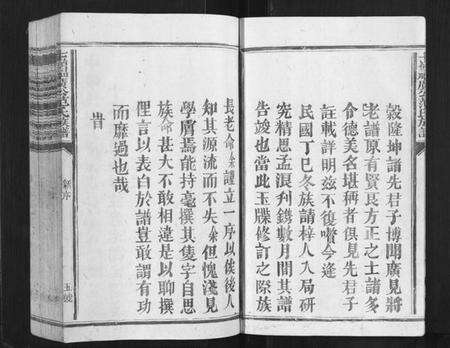 穀隆坤諸先君子博聞廣見將
老譜原有賢良方正之士諸多
令德美名堪稱者俱見先君子
註載詳明茲不復嘗今逢
民國丁巳冬族請梓人入局研
究精思孟浪刋鐫數月間其譜
告竣也當此玉牒修訂之際族
長老命余謹立一序以俟後人
知其源流而不失余但愧淺見
學膚焉能持毫撰其隻字自思
族命甚大不敢相違是以聊撰
俚言以表白於譜豈敢謂有功
而靡過也哉
旹
新序